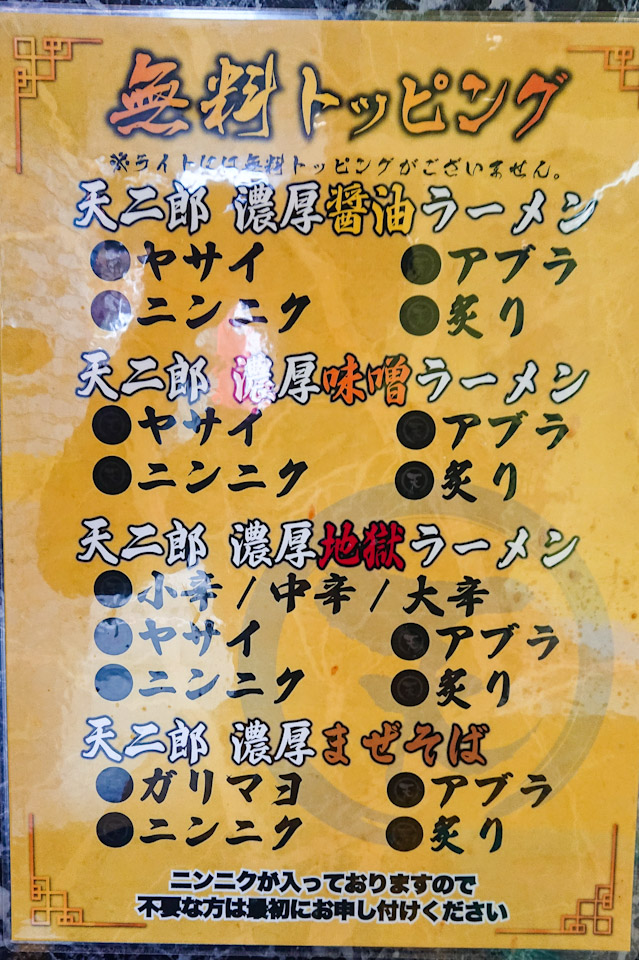 無料トッピング
※ライトには無料トッピングがございません。
天二郎 濃厚醤油ラーメン
●ヤサイ ●アブラ
●ニンニク ●炙り
天二郎 濃厚味噌ラーメン
●ヤサイ ●アブラ
●ニンニク ●炙り
天二郎 濃厚地獄ラーメン
●小辛 / 中辛 / 大辛
●ヤサイ ●アブラ
●ニンニク ●炙り
天二郎 濃厚まぜそば
●ガリマヨ ●アブラ
●ニンニク ●炙り
ニンニクが入っておりますので
不要な方は最初にお申し付けください